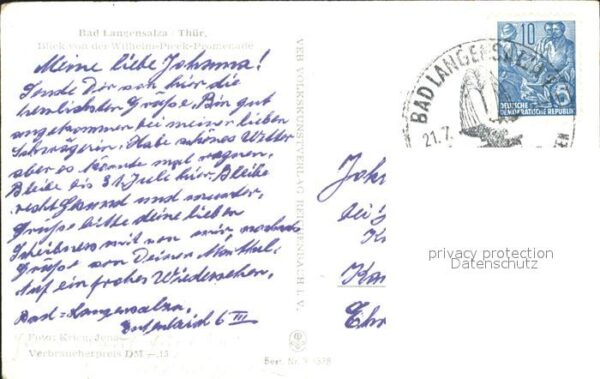 Bad Langensalza / Thür.
Blick von der Wilhelm-Pieck-Promenade
Meine liebe Johanna!
Sende Dir von hier die
herzlichsten Grüße. Bin gut
angekommen bei meiner lieben
Schwägerin. Habe schönes Wetter
aber es könnte mal regnen.
Bleibe bis 31. Juli hier. Bleibe
recht gesund und munter.
Grüße bitte deine lieben
mit von mir nochmals
Grüße von Deiner
Auf ein frohes Wiedersehen.
Bad-Langensalza,
6 III
Foto: Krien, Jena
Verbraucherpreis DM —.15
VEB VOLKSKUNSTVERLAG REICHENBACH I. V.
Best. Nr.
10
DEUTSCHE
DEMOKRATISCHE REPUBLIK
5
BAD LANGENSALZA
21.7.
privacy protection
Datenschutz